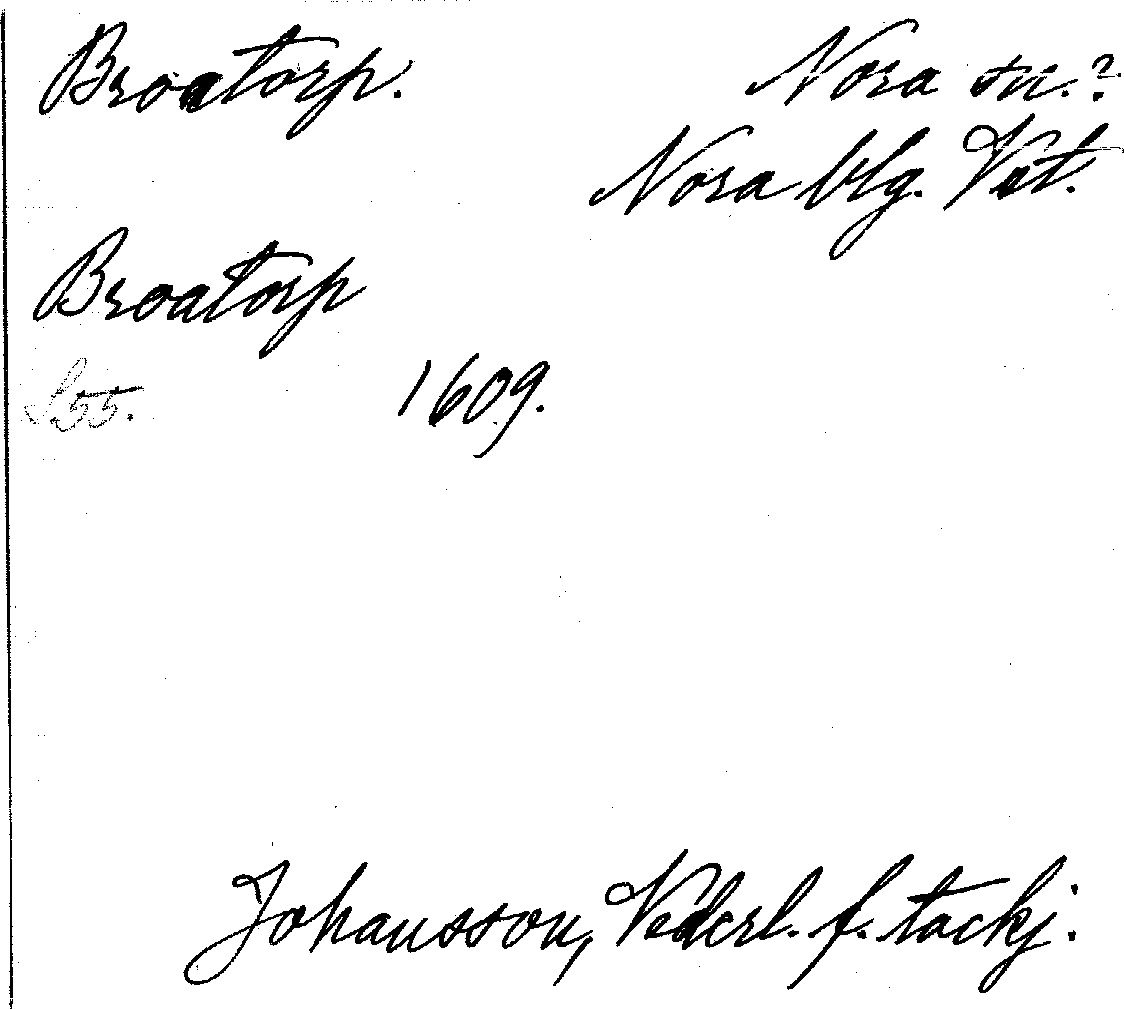 Broatorp. Nora sn.?
Nora blg. Vst.
Broatorp
S55. 1609.
Johansson, Vederl. f. tackj.